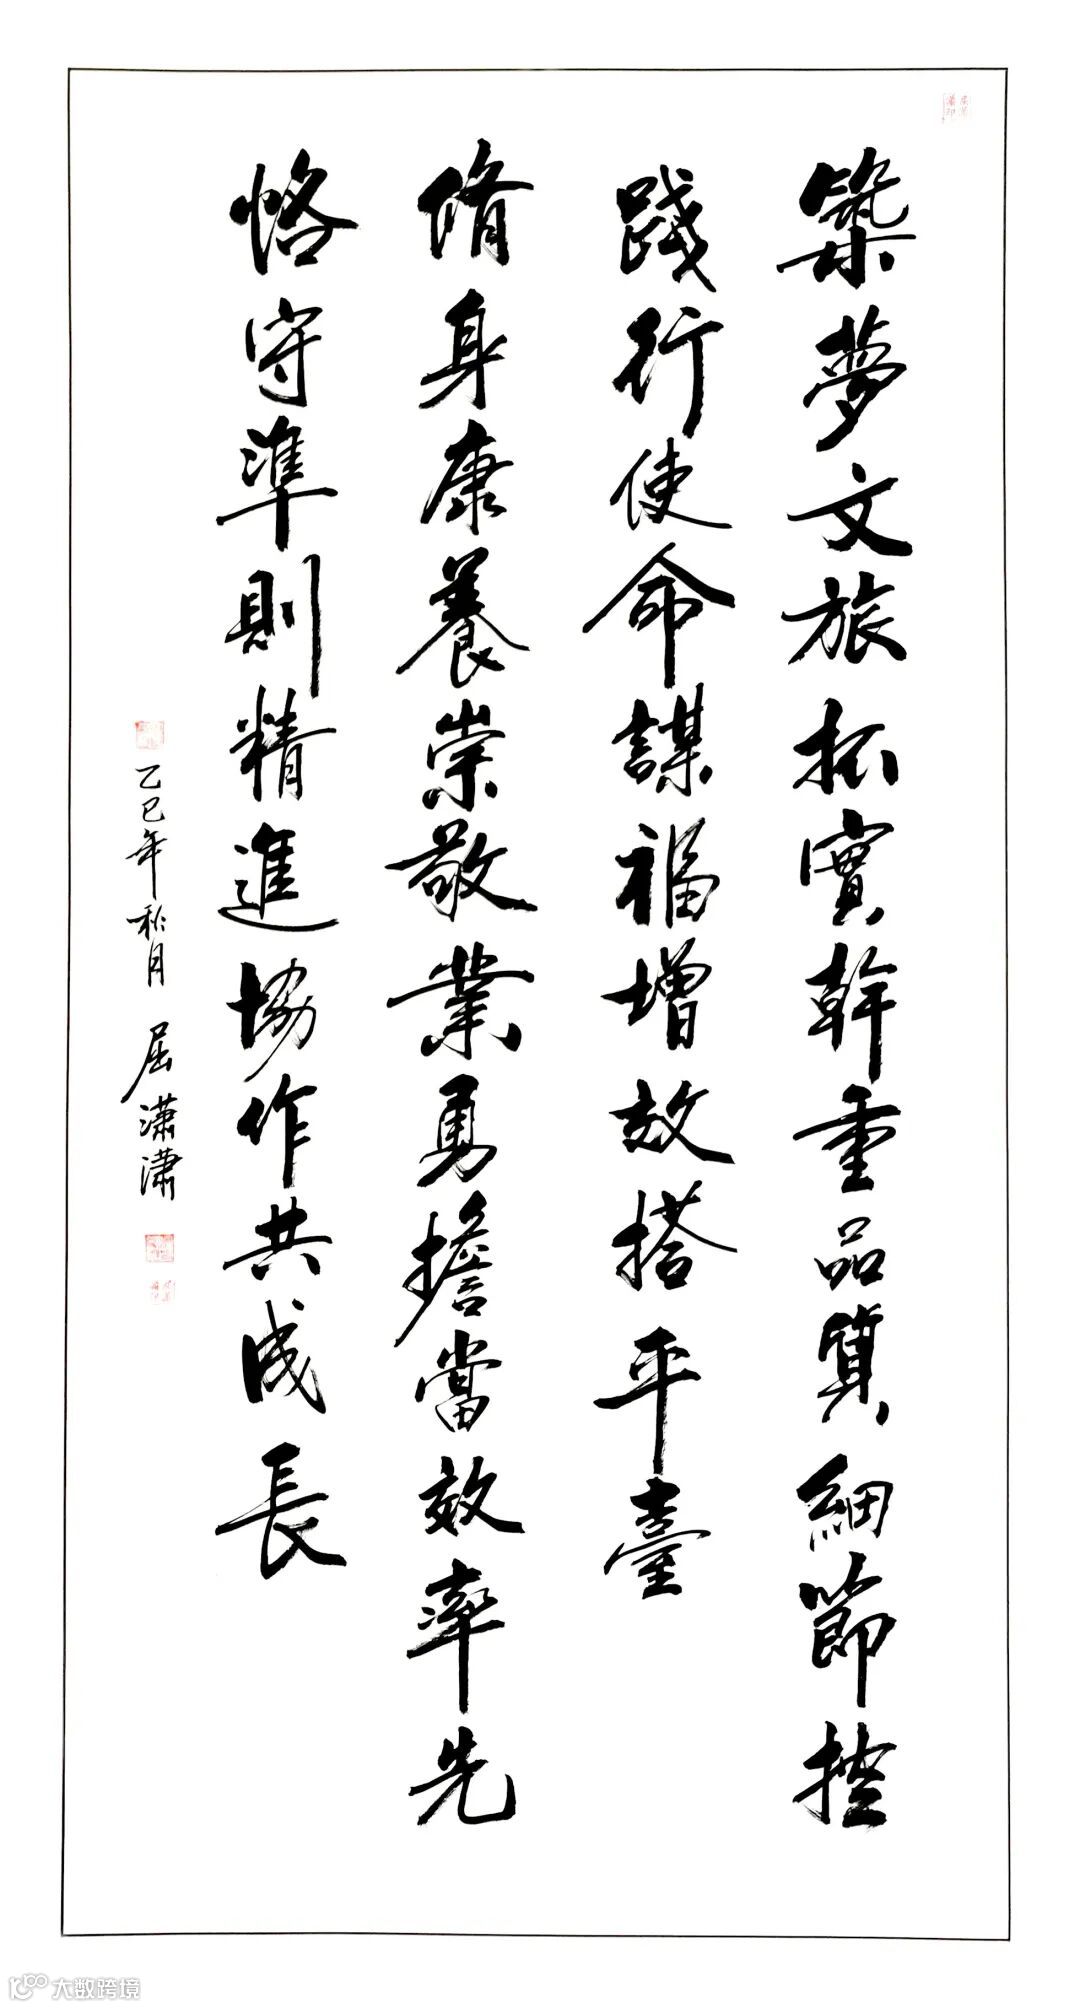 築夢文旅抓實幹重品質細節控
踐行使命謀福增效搭平臺
脩身康養崇敬業勇擔當效率先
恪守準則精進協作共成長
乙巳年秋月 屈潇潇
大数跨境